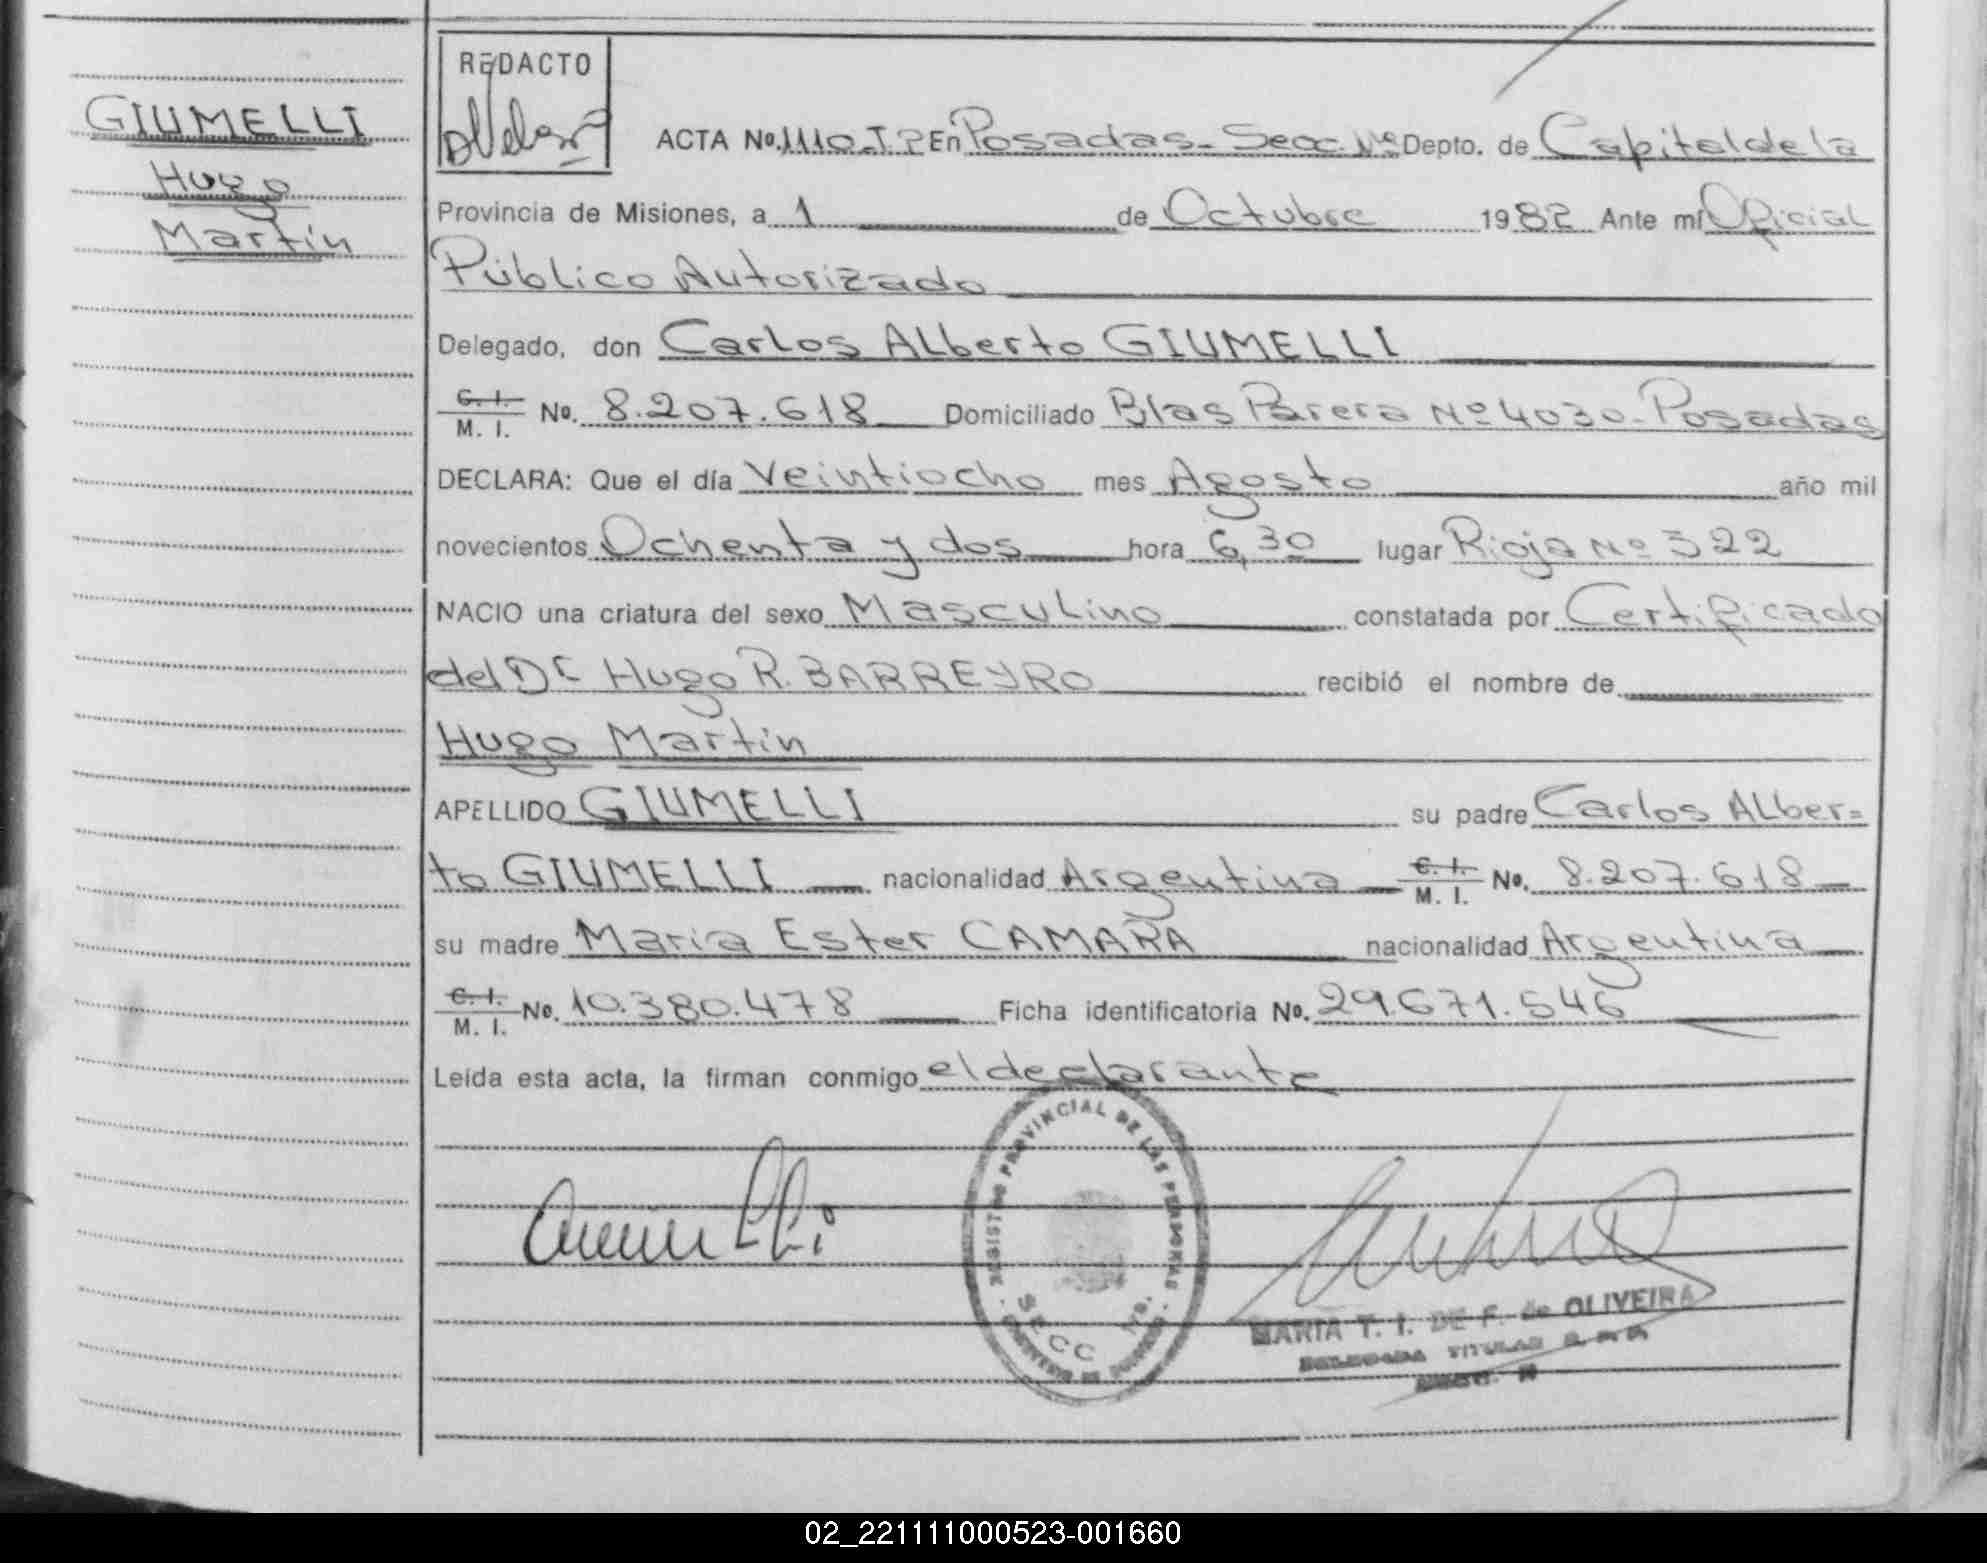 GIUMELLI
Hugo
Martín
REDACTO
ACTA No. 1110.T2 En Posadas- Secc. 1ra Depto. de Capital de la
Provincia de Misiones, a 1 de Octubre 1982 Ante mí Oficial
Público Autorizado
Delegado, don Carlos Alberto GIUMELLI
C. I. / M. I. No. 8.207.618 Domiciliado Blas Parera Nº 4030-Posadas
DECLARA: Que el día Veintiocho mes Agosto año mil
novecientos Ochenta y dos hora 6,30 lugar Rioja Nº 322
NACIO una criatura del sexo Masculino constatada por Certificado
del Dr Hugo R. BARREYRO recibió el nombre de
Hugo Martín
APELLIDO GIUMELLI su padre Carlos Alber=
to GIUMELLI nacionalidad Argentina C. I. / M. I. No. 8.207.618
su madre María Ester CAMAÑA nacionalidad Argentina
C. I. / M. I. No. 10.380.478 Ficha identificatoria No. 29.671.546
Leída esta acta, la firman conmigo el declarante
REGISTRO PROVINCIAL DE LAS PERSONAS
SECC 1ra.
MARIA T. I. DE F. de OLIVEIRA
DELEGADA TITULAR
02_221111000523-001660